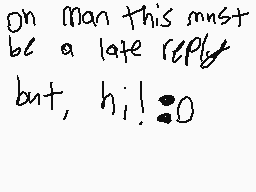 oh man this must
be a late reply
but, hi! :D